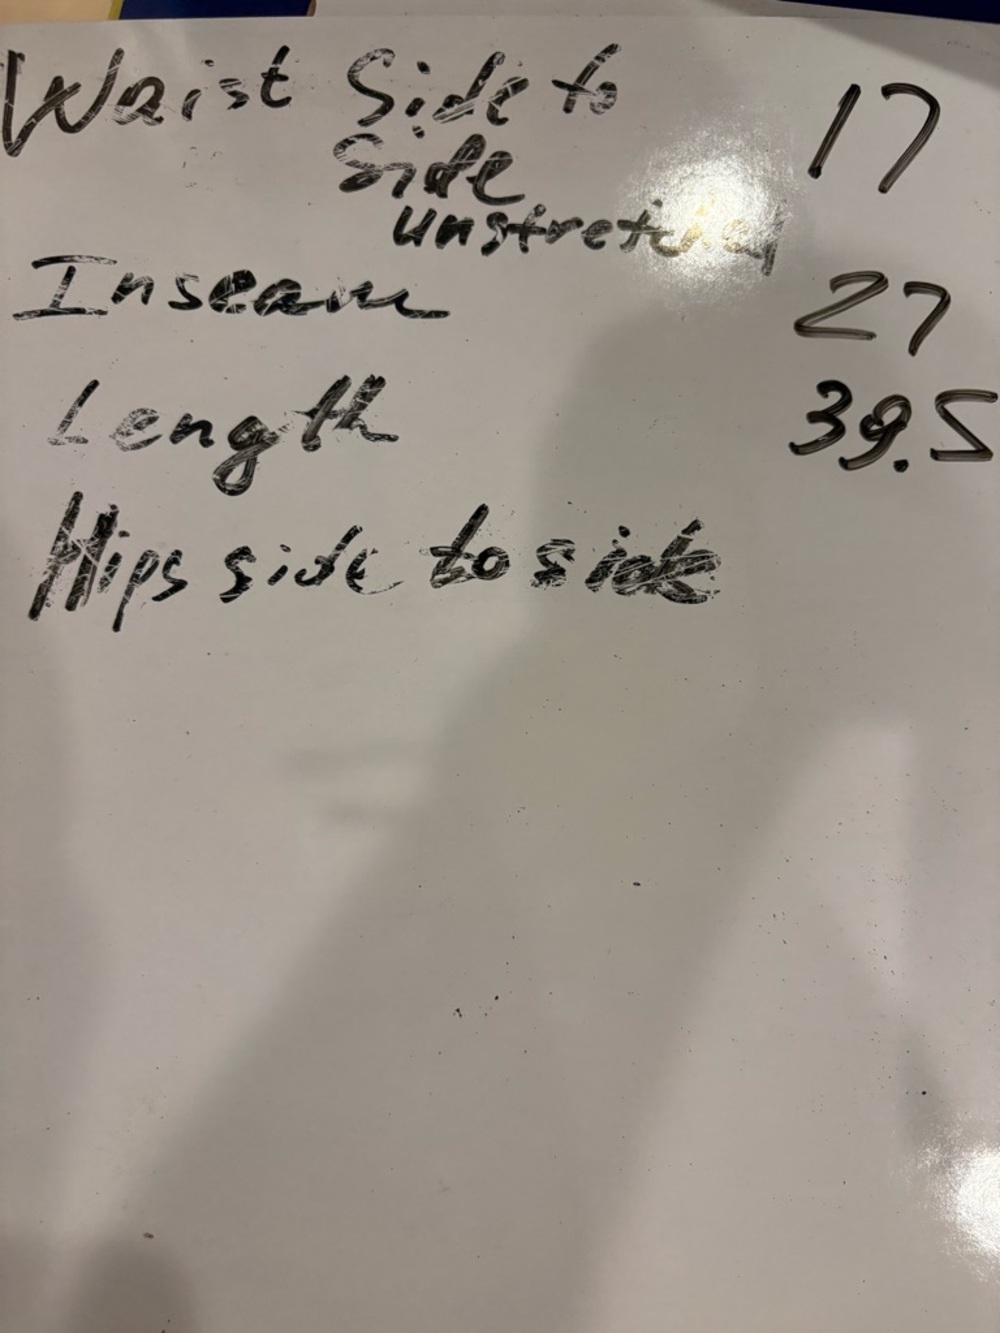 Waist Side to 17
Side
unstretched
Inseam 27
Length 39.5
Hips side to side